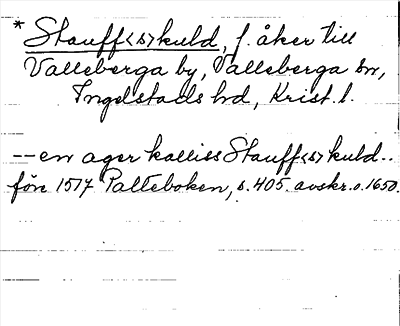 * Stauff<s>kuld, f. åker till
Valleberga by, Valleberga sn,
Ingelstads hd, Krist. l.
--en ager kalliss Stauff<s>kuld..
före 1517 Palteboken, s. 405. avskr. o. 1650.